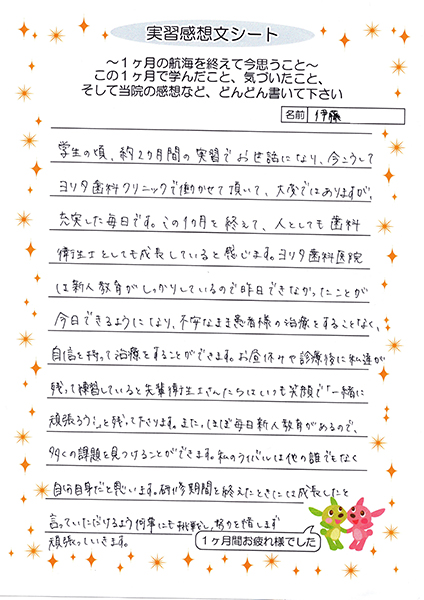 実習感想文シート
～1ヶ月の航海を終えて今思うこと～
この1ヶ月で学んだこと、気づいたこと、
そして当院の感想など、どんどん書いて下さい
名前 伊藤
学生の頃、約2カ月間の実習でお世話になり、今こうして
ヨリタ歯科クリニックで働かせて頂いて、大変ではありますが、
充実した毎日です。この1カ月を終えて、人としても歯科
衛生士としても成長していると感じます。ヨリタ歯科医院
は新人教育がしっかりしているので昨日できなかったことが
今日できるようになり、不安なまま患者様の治療をすることなく、
自信を持って治療をすることができます。お昼休みや診療後に私達が
残って練習していると先輩衛生士さんたちはいつも笑顔で「一緒に
頑張ろう!」と残って下さります。また、ほぼ毎日新人教育があるので、
多くの課題を見つけることができます。私のライバルは他の誰でもなく
自分自身だと思います。研修期間を終えたときには成長したと
言っていただけるよう何事にも挑戦し、努力を惜します
頑張っていきます。
1ヶ月間お疲れ様でした